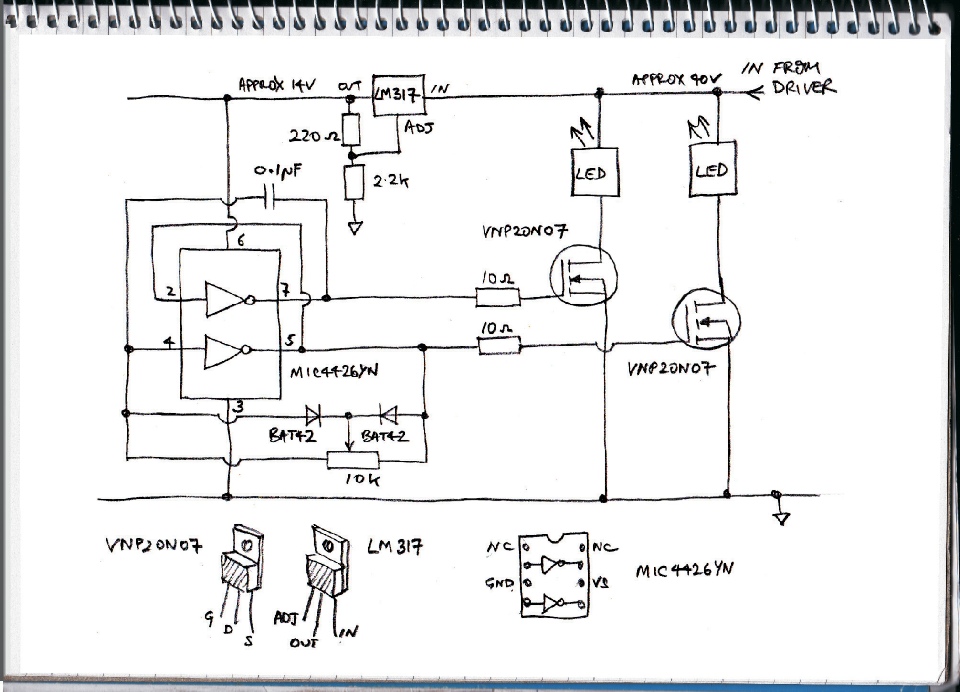 IN FROM
DRIVER
APPROX 14V
OUT
LM317
IN
APPROX 40V
ADJ
220Ω
2.2K
0.1µF
LED
LED
6
VNP20N07
2
7
10Ω
10Ω
4
5
MIC4426YN
VNP20N07
3
BAT42
BAT42
10K
VNP20N07
LM317
G
D
S
ADJ
OUT
IN
NC
NC
GND
VS
MIC4426YN